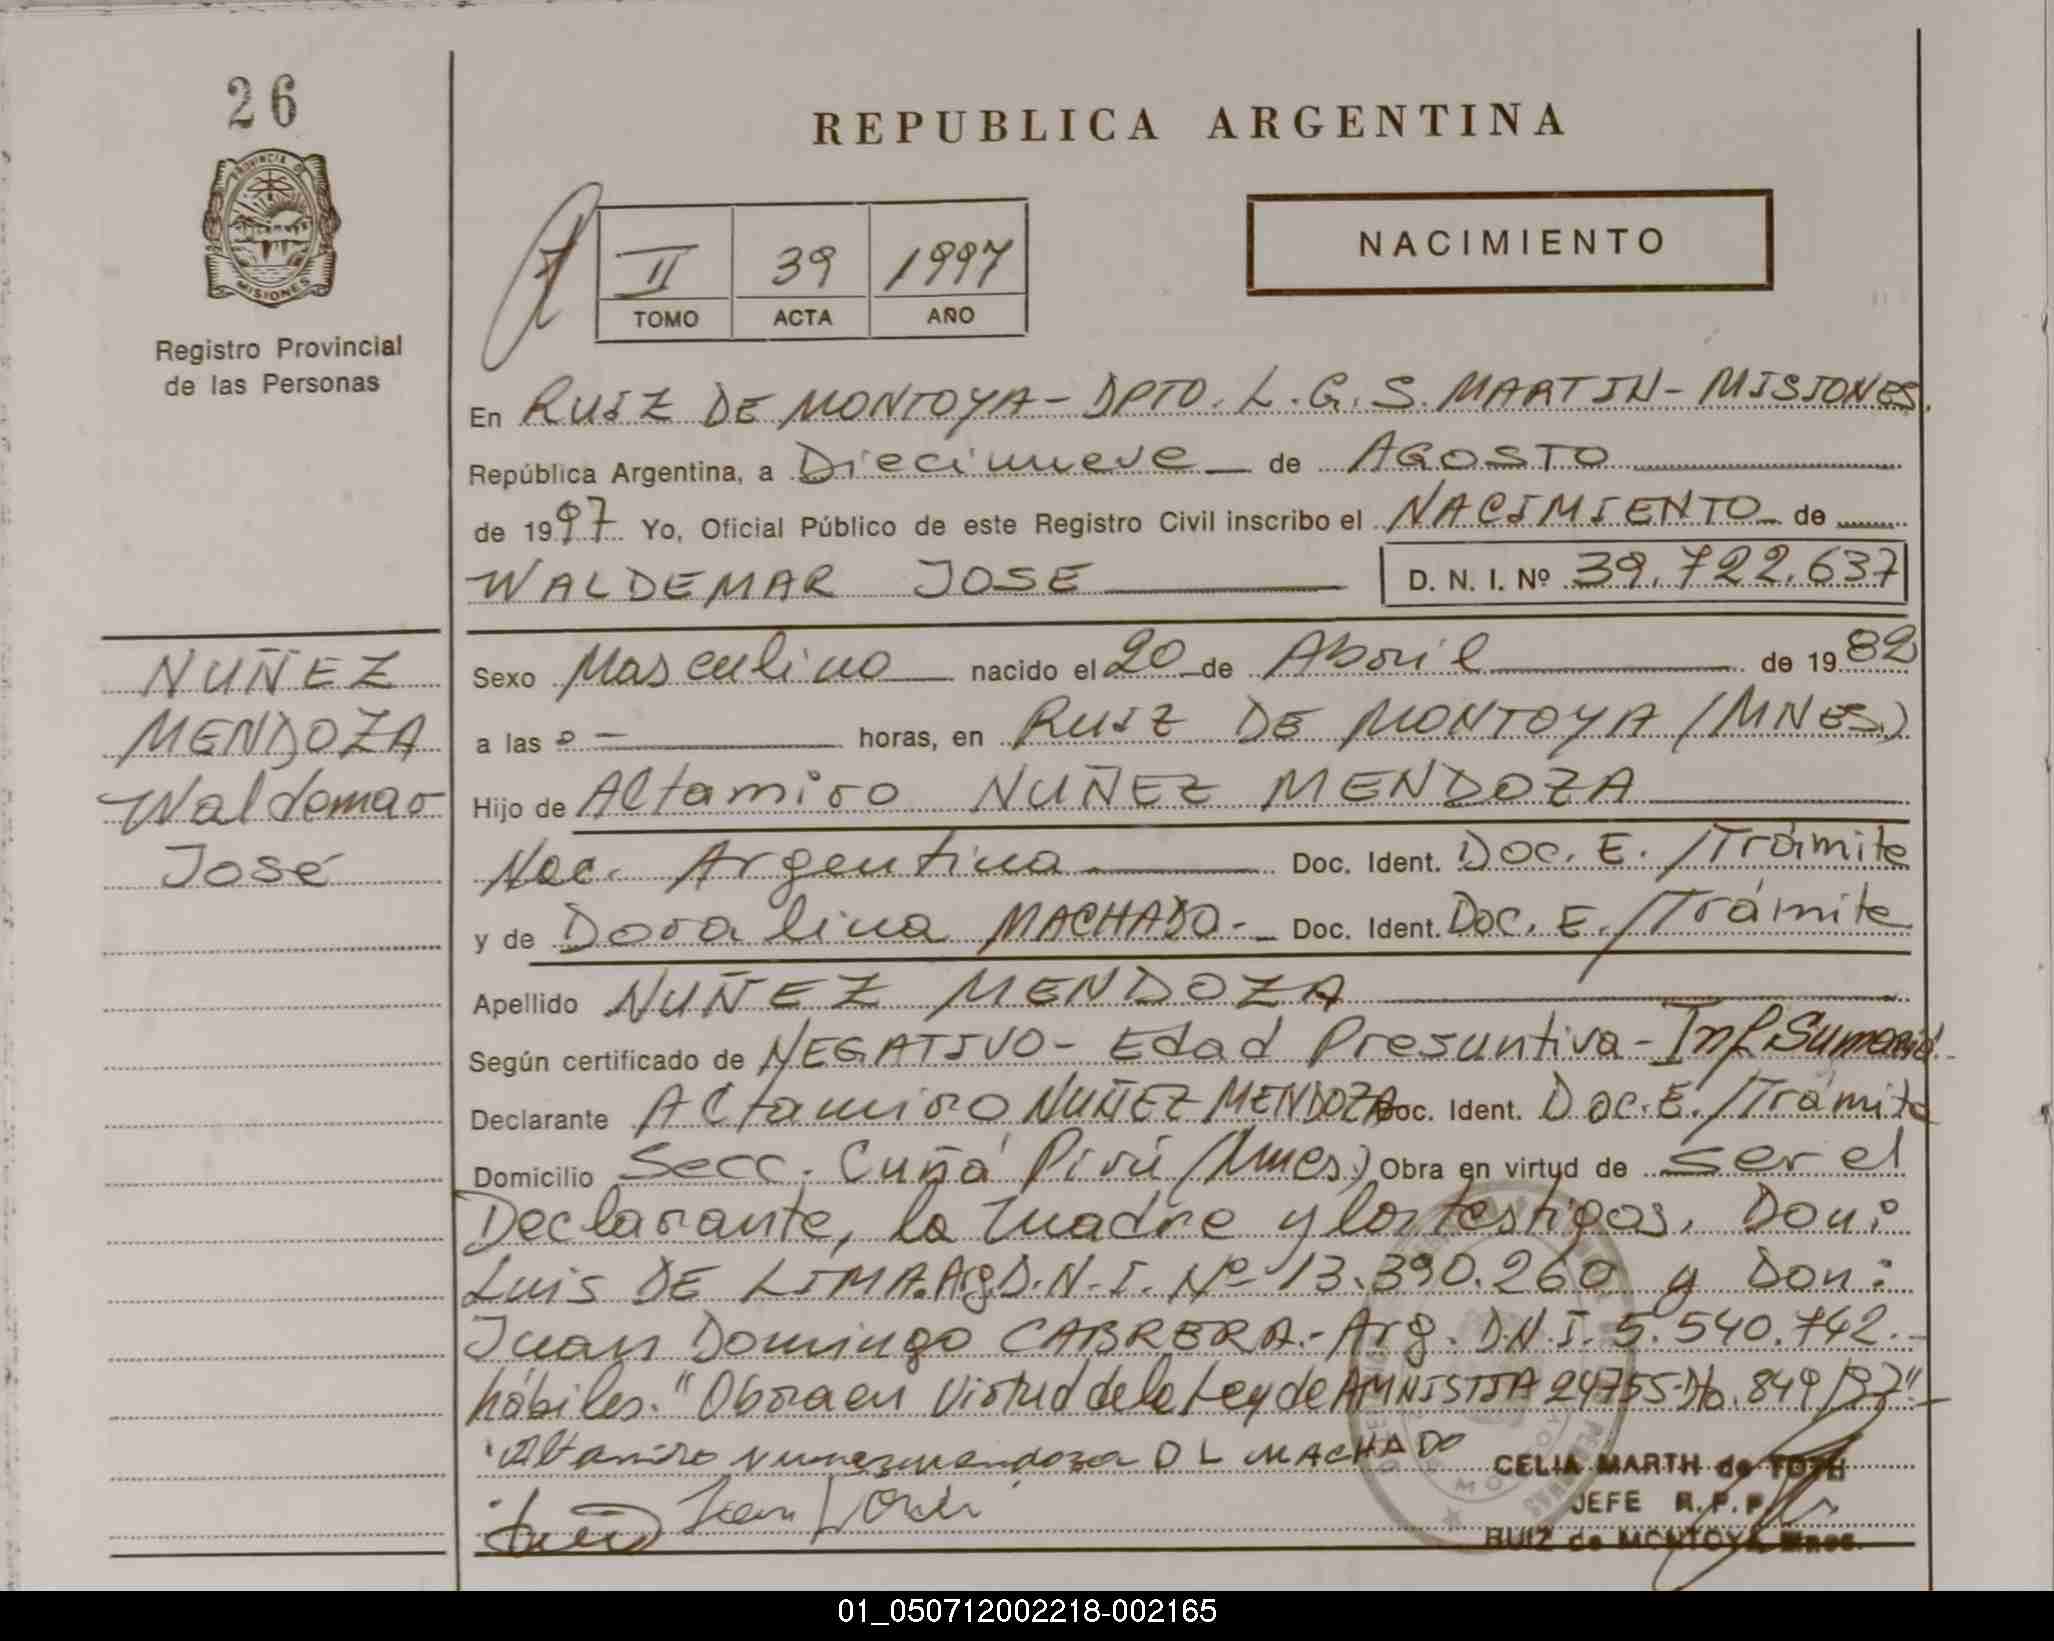 26
PROVINCIA DE
MISIONES
Registro Provincial
de las Personas
REPUBLICA ARGENTINA
II 39 1997
TOMO ACTA AÑO
NACIMIENTO
En RUIZ DE MONTOYA - DPTO. L. G. S. MARTIN - MISIONES.
República Argentina, a Diecinueve de AGOSTO
de 1997 Yo, Oficial Público de este Registro Civil inscribo el NACIMIENTO de
WALDEMAR JOSE D. N. I. Nº 39.722.637
NUÑEZ
MENDOZA
Waldemar
José
Sexo Masculino nacido el 20 de Abril de 1982
a las horas, en RUIZ DE MONTOYA (MNES.)
Hijo de Altamiro NUÑEZ MENDOZA
Nac. Argentina Doc. Ident. Doc. E./Trámite
y de Doralina MACHADO.- Doc. Ident. Doc. E./Trámite
Apellido NUÑEZ MENDOZA
Según certificado de NEGATIVO - Edad Presuntiva - Inf. Sumaria.
Declarante Altamiro NUÑEZ MENDOZA Doc. Ident. Doc. E./Trámite
Domicilio Secc. Cuñá Pirú (Mnes.) Obra en virtud de ser el
Declarante, la Madre y los testigos. Don:
Luis DE LIMA. Arg. D.N.I. Nº 13.390.260 y Don:
Juan Domingo CABRERA.- Arg. D.N.I. 5.540.742.-
hábiles. "Obra en Virtud de la Ley de AMNISTIA 24755-Dto. 849/97"
Altamiro nunez mendoza D L MACHADO
CELIA MARTH de TOTH
JEFE R.P.P.
RUIZ de MONTOYA Mnes.
01_050712002218-002165